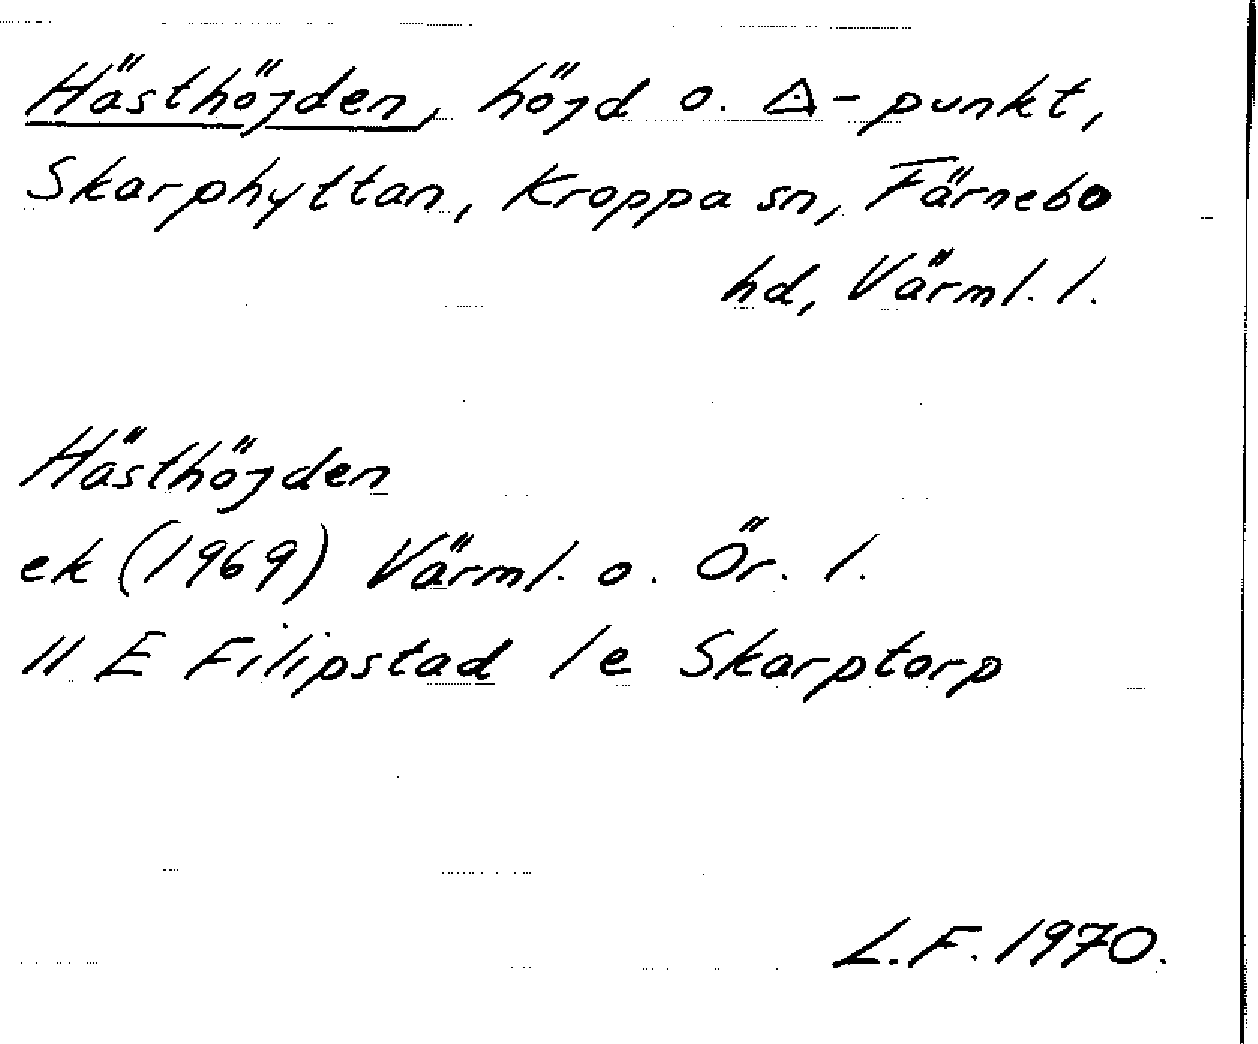 Hästhöjden, höjd o. △-punkt,
Skarphyttan, Kroppa sn, Färnebo
hd, Värml. l.
Hästhöjden
ek (1969) Värml. o. Ör. l.
11 E Filipstad 1e Skarptorp
L.F. 1970.